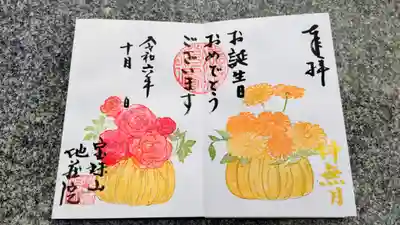 奉拝
お誕生日
おめでとう
ございます
令和六年
十月 日
宝珠山
地蔵院
神無月